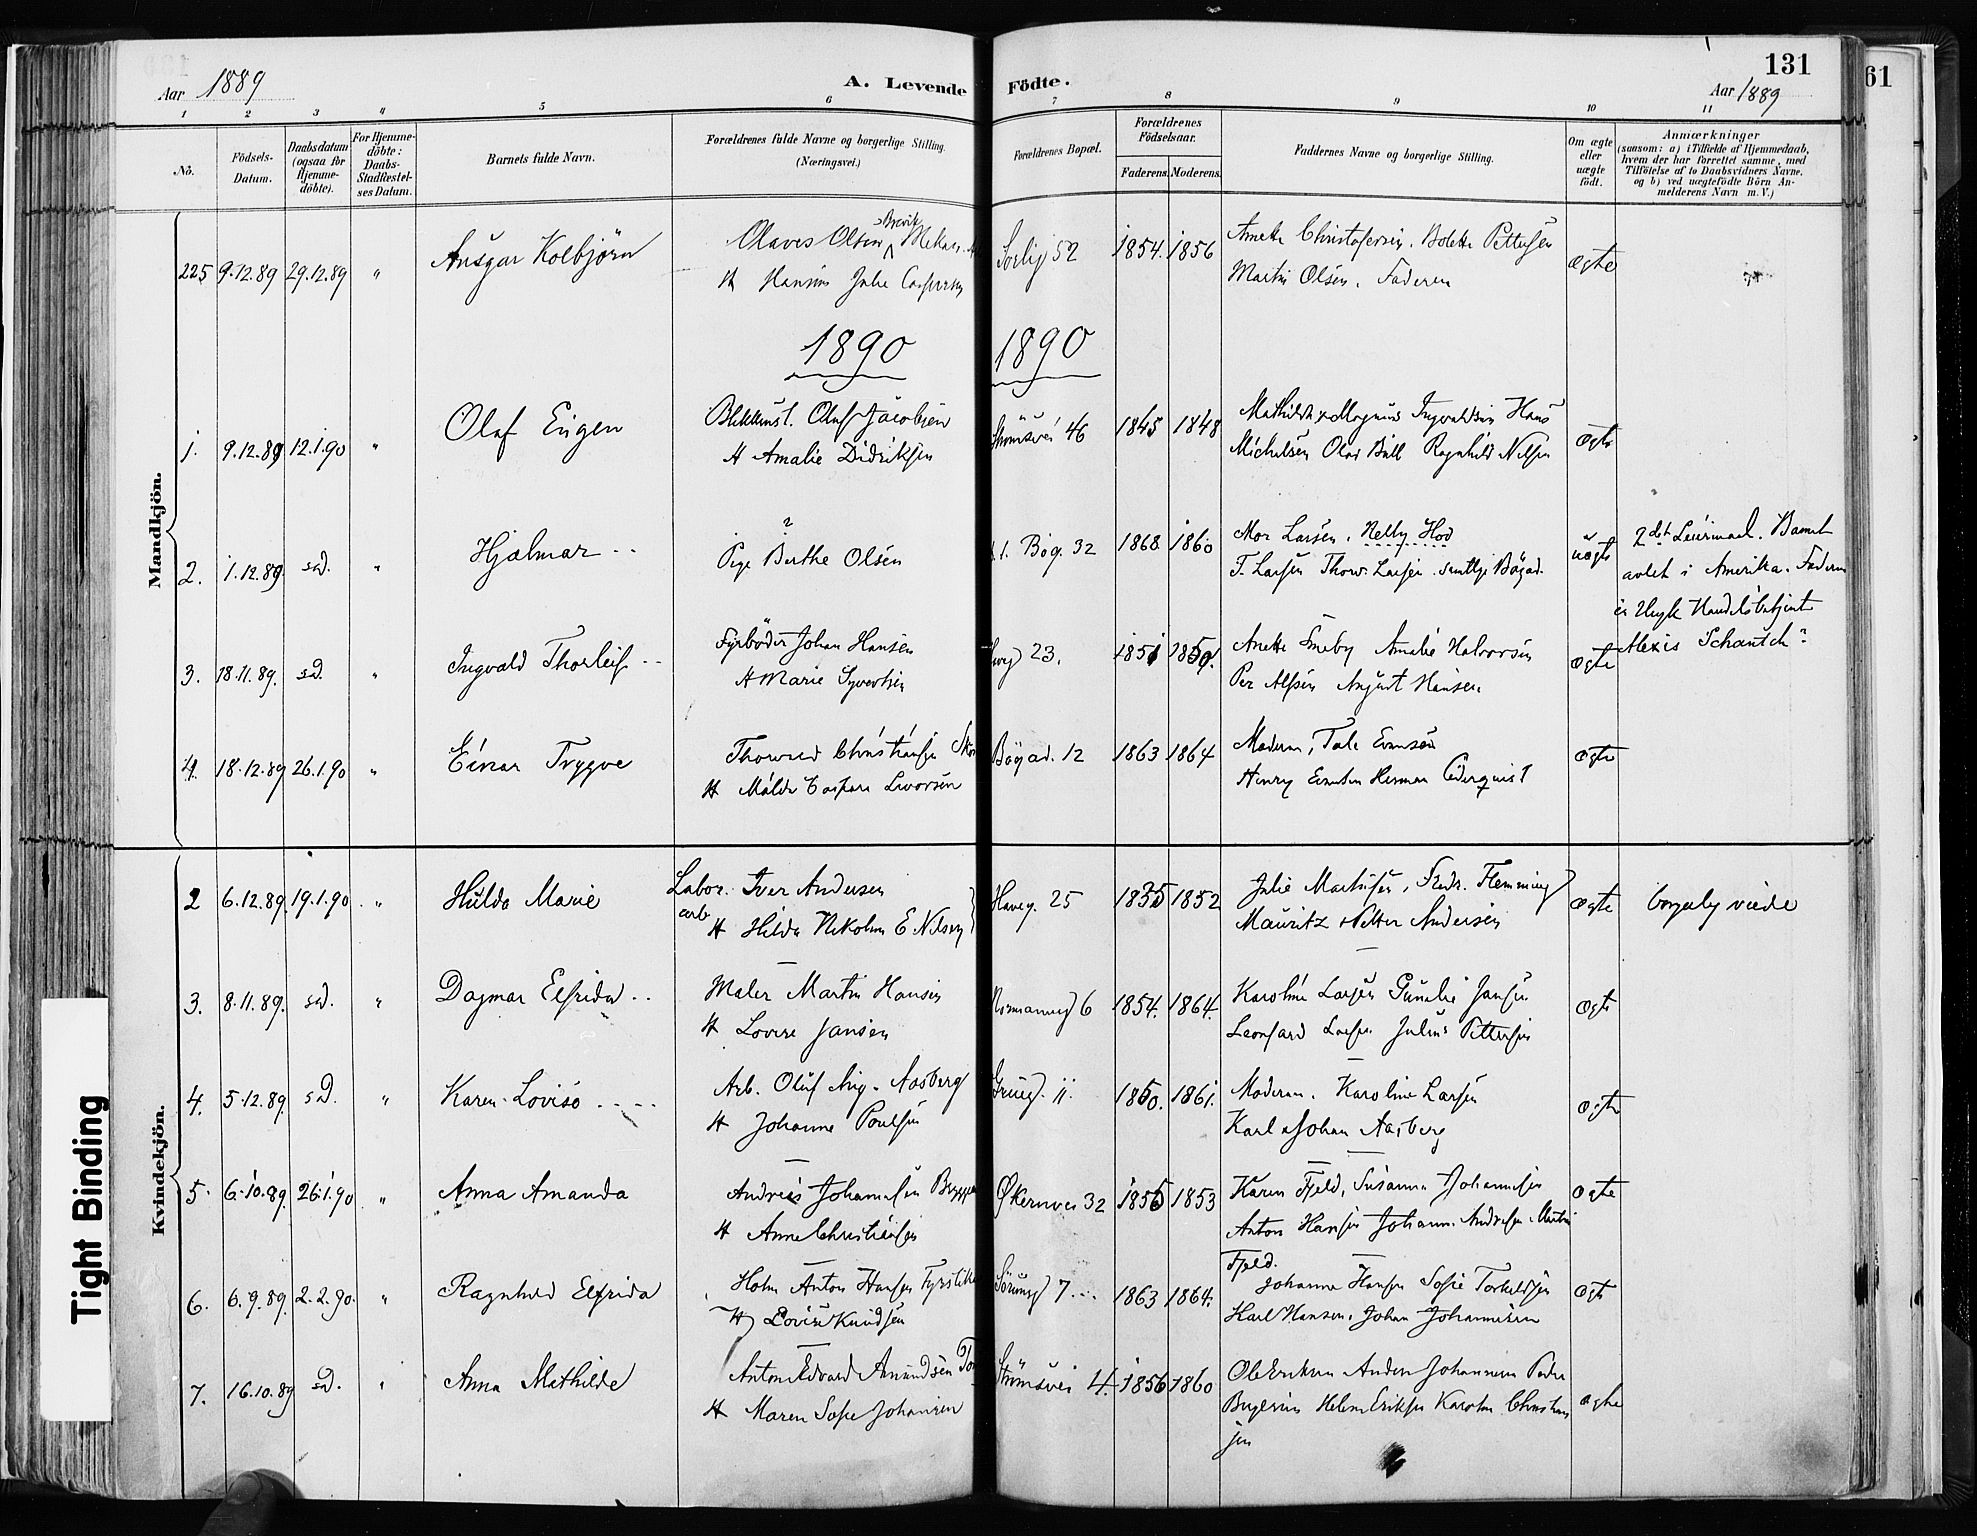 131
61
Aar 1889
A. Levende Födte.
Aar 1889
1 2 3 4 5 6 7 8 9 10 11
No.
Födsels-Datum.
Daabsdatum (ogsaa for Hjemme-döbte).
For Hjemme-döbte: Daabs-Stadfæstel-ses Datum.
Barnets fulde Navn.
Forældrenes fulde Navne og borgerlige Stilling. (Næringsvei.)
Forældrenes Bopæl.
Forældrenes Födselsaar.
Faderens. Moderens.
Faddernes Navne og borgerlige Stilling.
Om ægte eller uægte födt.
Anmærkninger
(saasom: a) i Tilfælde af Hjemmedaab,
hvem der har forrettet samme, med
Tilföielse af to Daabsvidners Navne,
og b) ved uægtefödte Börn An-
melderens Navn m. V.)
Mandkjön.
225 9.12.89 29.12.89 " Ansgar Kolbjörn
Olaves Olsen Brevik Mekan.
H Hansine Julie Caspersen
Sorlig 52 1854. 1856
Anette Christofersen. Bolette Pettersen
Martin Olsen. Faderen
ægte
1890 1890
1. 9.12.89 12.1.90 " Olaf Eugen
Blikkensl. Oluf Jacobsen
H Amalie Didriksen
Strömsvei 46 1845 1848
Mathilda & Magnus Ingvaldsen Hans
Michelsen Olav Bull Ragnhild Nilsen
ægte
2. 1.12.89 sd. " Hjalmar --
?
Pige Berthe Olsen
Bög. 32 1868 1860
Mor Larsen. Nelly Hod
T. Larsen Thorv. Larsen. samtlige Bögad.
uægte
2det Leiermaal. Barnet
avlet i Amerika. Faderen
er Ungk Handelsbetjent
Alexis Schantch?
3. 18.11.89. sd. " Ingvald Thorleif --
Fyrböder Johan Hansen
H Marie Syvertsen
23. 1851 1859.
Anette Smeby Amalie Halvorsen
Per Alfsen August Hansen
ægte
4. 18.12.89 26.1.90 " Einar Trygve
Thorvald Christiansen
H Milda Caspara Livorsen
Bögad. 12 1863 1864
Moderen, Tale Evensen
Henry Evensen Herman Cederquist
ægte
Kvindekjön.
2 6.12.89. 19.1.90 " Hulda Marie
Labor. Iver Andersen
arb H Hilda Nikoline E Nilsen
Haveg. 25 1835 1852
Julie Mathisen, Fredr. Flemming
Mauritz & Petter Andersen
ægte borgerlig viede
3. 8.11.89. sd. " Dagmar Elfrida --
Maler Martin Hansen
H Lovise Jansen
Normannsg 6 1854. 1864.
Karoline Larsen Gunelie Jansen
Leonhard Larsen Julius Pettersen
ægte
4. 5.12.89. sd. " Karen Lovise
Arb. Oluf Aug. Aasberg
H Johanne Poulsen
Grueg. 11. 1850. 1861.
Moderen. Karoline Larsen
Karl & Johan Aasberg
ægte
5. 6.10.89. 26.1.90 " Anna Amanda
Andreas Johannesen
H Anne Christiansen
Økernvei 32 1855 1853
Karen Fjeld, Susanna Johannesen
Anton Hansen Johan Andersen Martin
Fjeld.
ægte
6. 6.9.89. 2.2.90. " Ragnhild Elfrida
Holm Anton Hansen
H Lovise Knudsen
Sörumsg 7 1863 1864.
Johanne Hansen Sofie Torkeldsen
Karl Hansen, Johan Johannesen
ægte
7. 16.10.89 sd. " Anna Mathilde
Anton Edvard Amundsen
H Maren Sofie Johansen
Strömsvei 4 1856 1860
Ole Eriksen Anders Johannesen
Helene Eriksen Karoline Christian
sen
ægte
Tight Binding